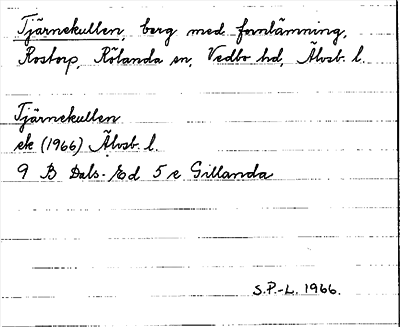 Tjärnekullen, berg med fornlämning,
Rostorp, Rölanda sn, Vedbo hd, Älvsb. l.
Tjärnekullen
ek (1966) Älvsb. l.
9 B Dals-Ed 5 e Gillanda
S.P.-L. 1966.